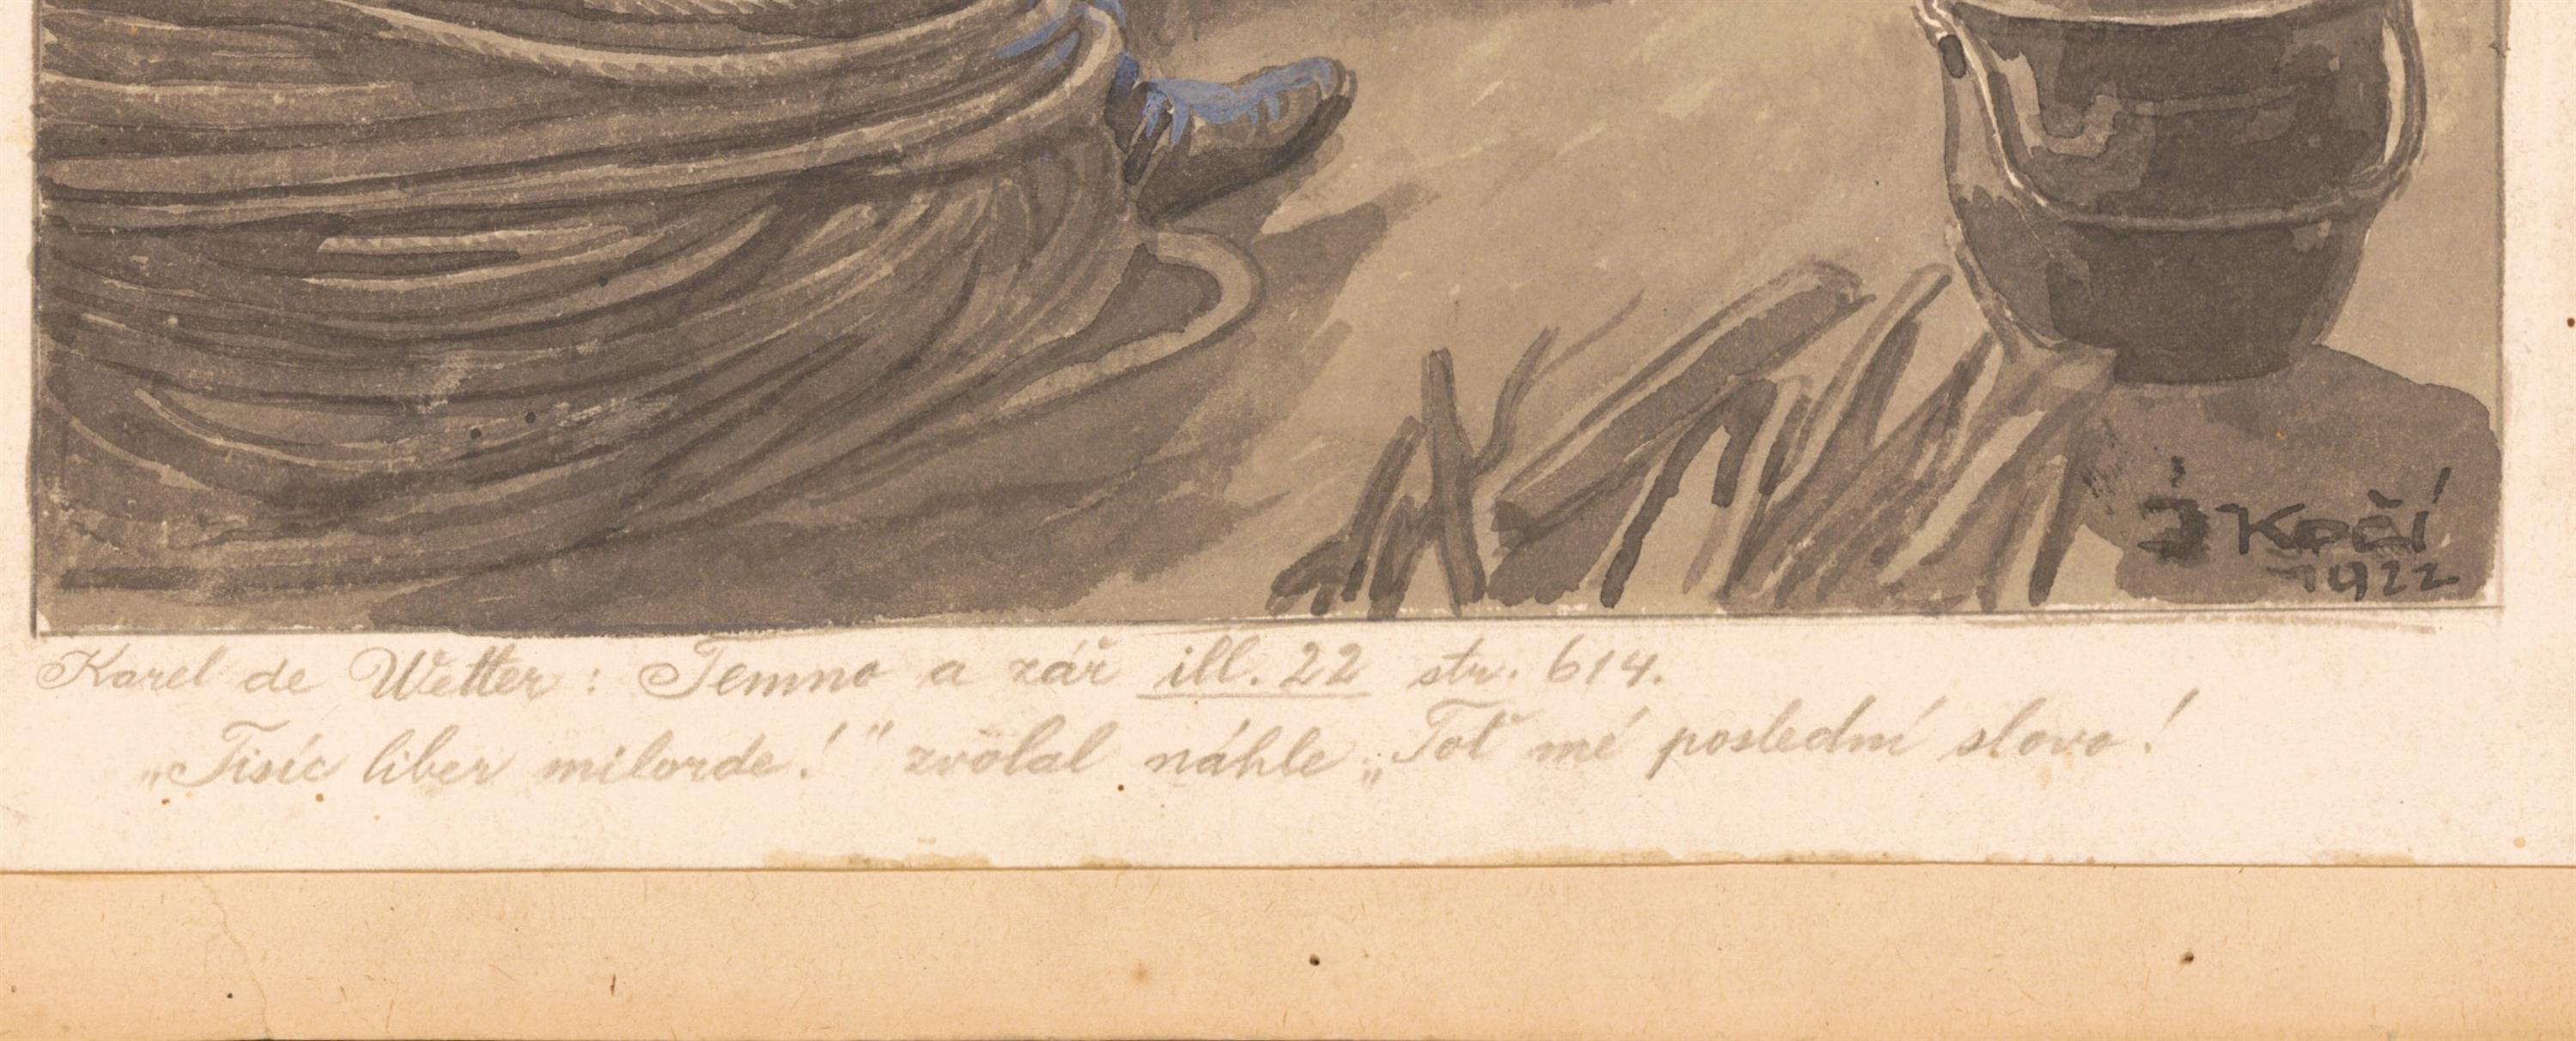 J Kočí
1922
Karel de Wetter: Temno a zář ill. 22 str. 614.
„Tisíc liber milorde!" zvolal náhle „Toť mé poslední slovo!